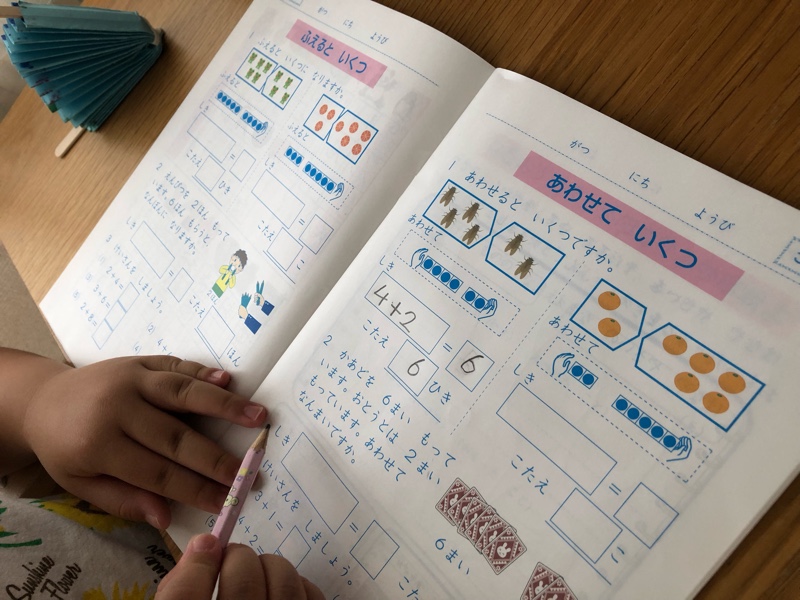 がつ にち ようび
ふえると いくつ
1 ふえると いくつに なりますか。
ふえると
ふえると
しき
しき
=
=
こたえ
ひき
こたえ
こ
2 えんぴつを 2ほん もって
います。6ぽん もらうと、
なんぼんに なりますか。
しき
=
こたえ
ほん
3 けいさんを しましょう。
がつ にち ようび
あわせて いくつ
1 あわせると いくつですか。
あわせて
しき
4+2
=
6
こたえ
6
ひき
あわせて
しき
=
こたえ
こ
2 かあどを 6まい もって
います。おとうとは 2まい
もっています。あわせて
なんまいですか。
しき
=
6まい
けいさんを しましょう。
3+1=
(5) 4+2=
Sunshine
Flower